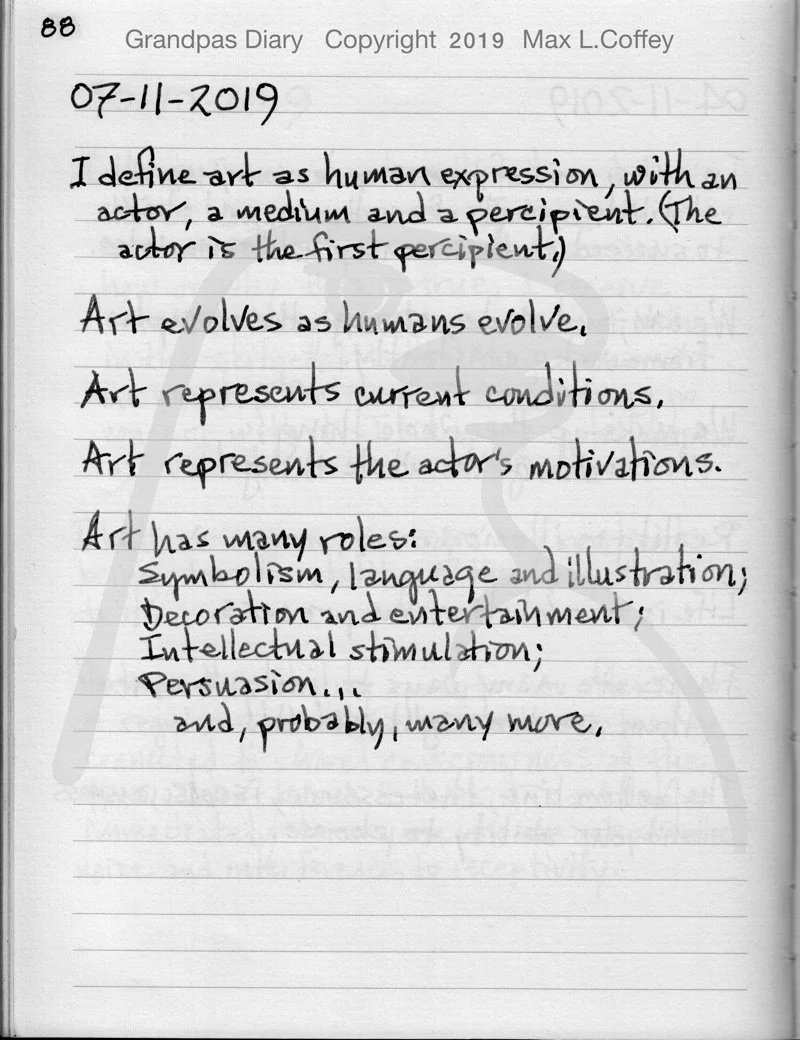 88
Grandpas Diary Copyright 2019 Max L.Coffey
07-11-2019
I define art as human expression, with an
actor, a medium and a percipient. (The
actor is the first percipient.)
Art evolves as humans evolve.
Art represents current conditions.
Art represents the actor's motivations.
Art has many roles:
Symbolism, language and illustration;
Decoration and entertainment;
Intellectual stimulation;
Persuasion...
and, probably, many more.